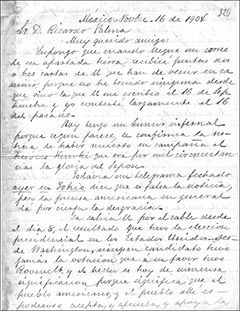 320
Mexico Novbe. 16 de 1904
Sr. D. Ricardo Palma
Muy querido amigo:
Supongo que cuando llegue un correo
de su apartada tierra, recibiré juntas dos
o tres cartas de U que han de venir en ca
mino, porque no he tenido ninguna desde
que vino la que U me escribió el 16 de Sep
tiembre y yo contesté largamente el 16
del pasado.
Hoy tengo un humor infernal
porque según parece se confirma la no
ticia de haber muerto en campaña el
que era por mil circunstan
cias la gloria del Japon.
Todavía un telegrama fechado
ayer en Tokio dice que es falsa la noticia,
pero la prensa americana en general
da por cierta la desgracia.
Ya sabrá U por el cable desde
el día 8, el resultado que tuvo la elección
presidencial en los Estados Unidos. Desde
Washington, ningun candidato tuvo
jamás la votación que a su favor tuvo
Roosevelt, y el hecho es de inmensa
significación porque significa que el
pueblo americano, y el pueblo allí es
poderoso, acepta, y aprueba, y apoya la